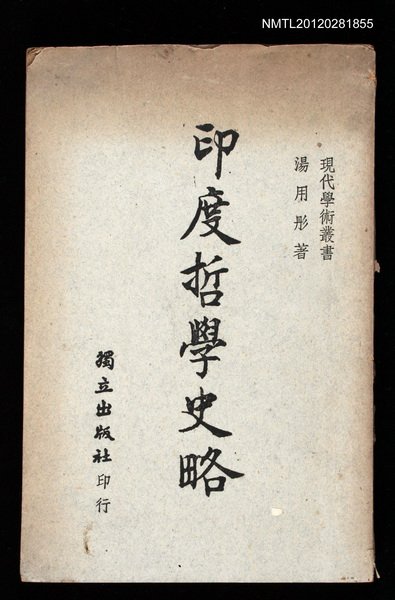 NMTL20120281855
現代學術叢書
湯用彤著
印度哲學史略
獨立出版社印行